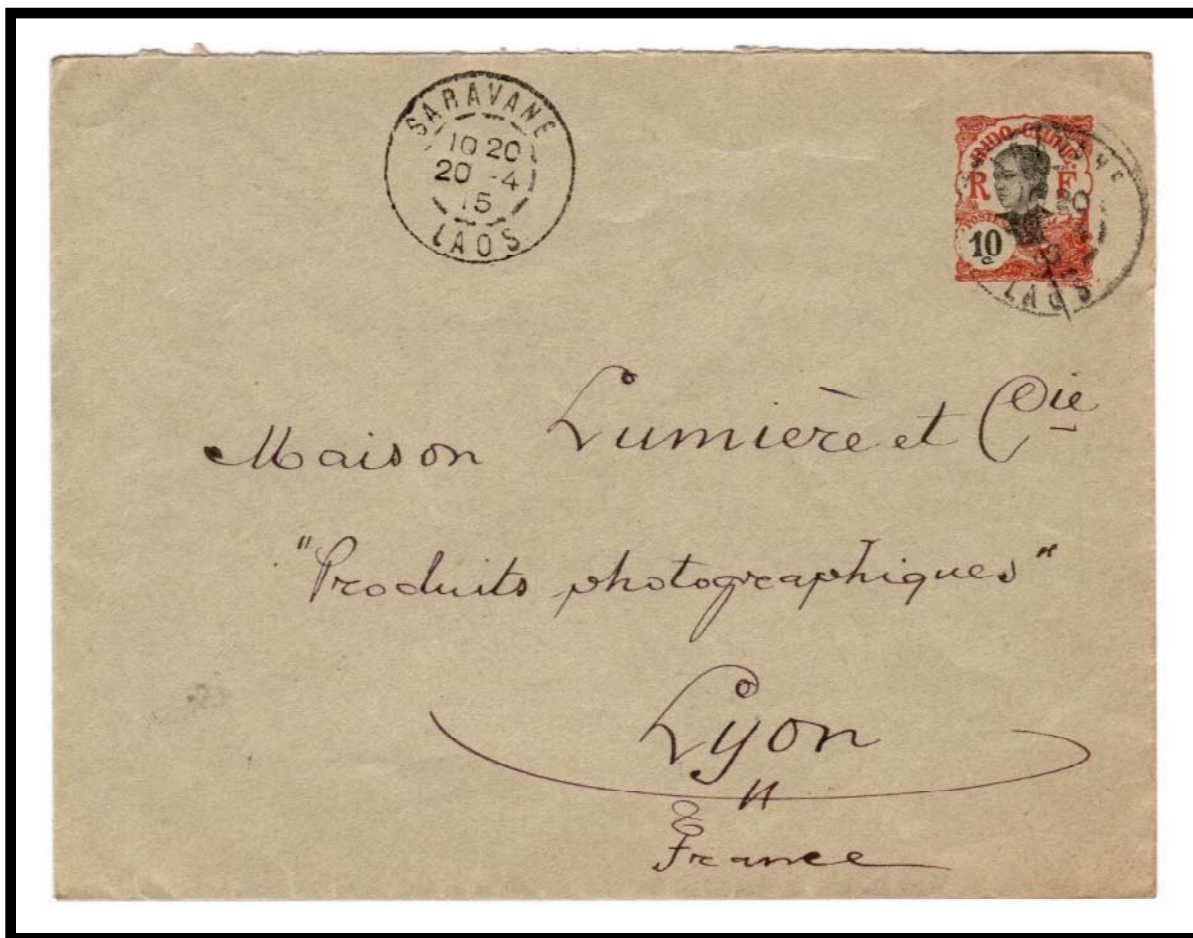 SARAVANE
10 20
20 -4
15
LAOS
INDO-CHINE
R F
POSTES
10
c
LAOS
Maison Lumière et Cie
"Produits photographiques"
Lyon
France